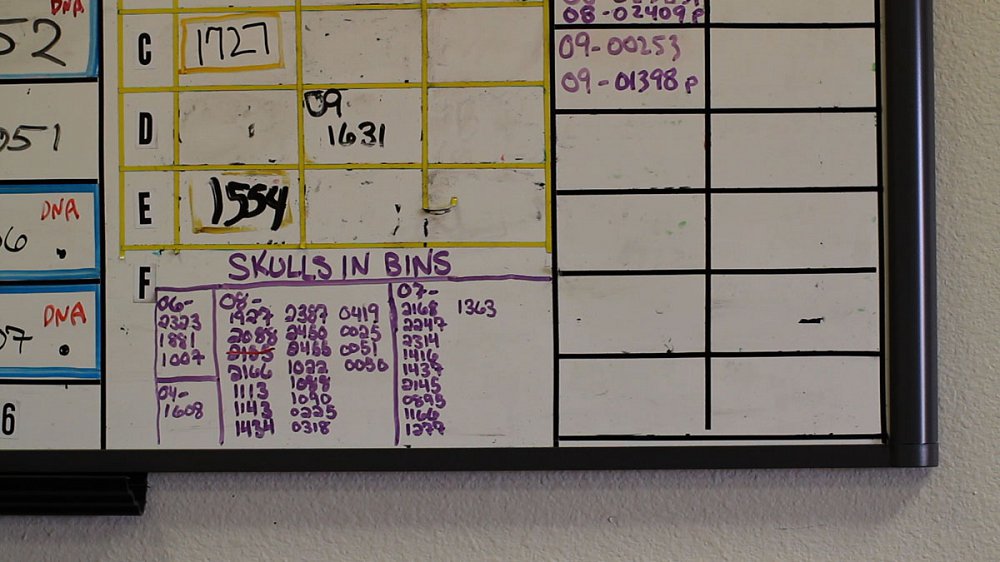 DNA
52
C
1727
08-02409p
09-00253
09-01398p
051
D
09
1631
DNA
6
E
1554
F
SKULLS IN BINS
06-
2323
1881
1007
04-
1608
08-
1927 2387 0419
2088 2450 0025
2185 2466 0051
2166 1022 0050
1113 1088
1143 1090
1434 0225
0318
07-
2168 1363
2247
2314
1416
1439
2145
0895
1166
1277
DNA
07
6